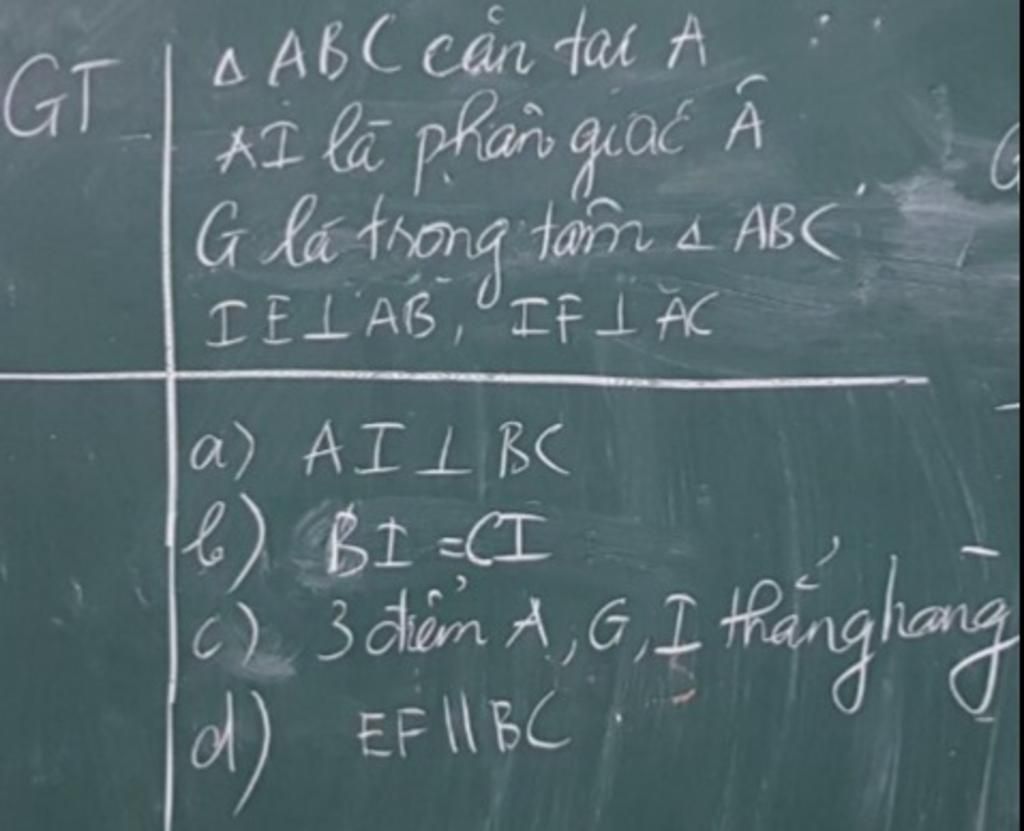 GT
△ ABC cân tại A
AI là phân giác Â
G là trọng tâm △ ABC
IE ⊥ AB, IF ⊥ AC
a) AI ⊥ BC
b) BI = CI
c) 3 điểm A, G, I thẳng hàng
d) EF // BC